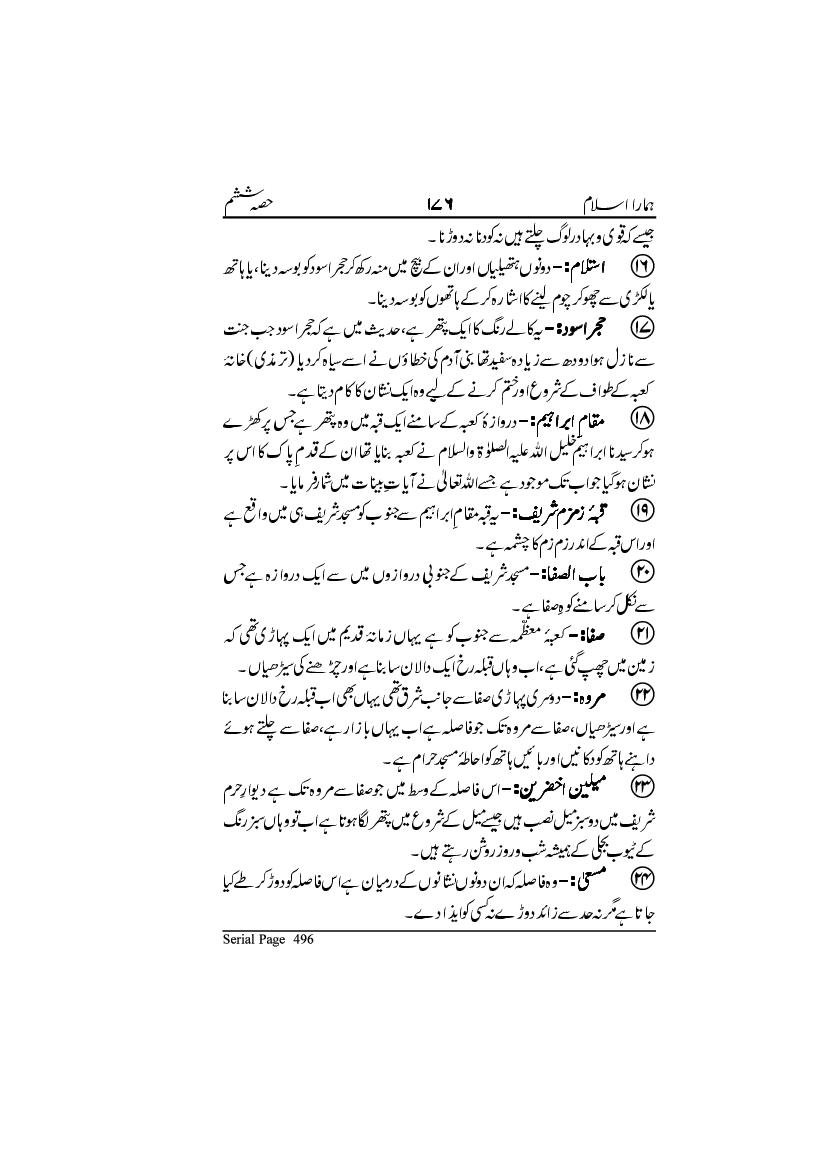 ہمارا اسلام ۱۷۶ حصہ ششم
جیسے کہ قوی و بہادر لوگ چلتے ہیں نہ کودنا نہ دوڑنا ۔
۱۶ استلام: – دونوں ہتھیلیاں اور ان کے بیچ میں منہ رکھ کر حجر اسود کو بوسہ دینا، یا ہاتھ
یا لکڑی سے چھو کر چوم لینے کا اشارہ کر کے ہاتھوں کو بوسہ دینا۔
۱۷ حجر اسود: – یہ کالے رنگ کا ایک پتھر ہے، حدیث میں ہے کہ حجر اسود جب جنت
سے نازل ہوا دودھ سے زیادہ سفید تھا بنی آدم کی خطاؤں نے اسے سیاہ کر دیا (ترمذی) خانۂ
کعبہ کے طواف کے شروع اور ختم کرنے کے لیے وہ ایک نشان کا کام دیتا ہے۔
۱۸ مقامِ ابراہیم: – دروازۂ کعبہ کے سامنے ایک قبہ میں وہ پتھر ہے جس پر کھڑے
ہو کر سیدنا ابراہیم خلیل اللہ علیہ الصلوٰۃ والسلام نے کعبہ بنایا تھا ان کے قدمِ پاک کا اس پر
نشان ہو گیا جو اب تک موجود ہے جسے اللہ تعالیٰ نے آیاتِ بینات میں شمار فرمایا ۔
۱۹ قبۂ زمزم شریف: – یہ قبہ مقامِ ابراہیم سے جنوب کو مسجد شریف ہی میں واقع ہے
اور اس قبہ کے اندر زم زم کا چشمہ ہے ۔
۲۰ باب الصفا: – مسجد شریف کے جنوبی دروازوں میں سے ایک دروازہ ہے جس
سے نکل کر سامنے کوہِ صفا ہے ۔
۲۱ صفا: – کعبۂ معظّمہ سے جنوب کو ہے یہاں زمانۂ قدیم میں ایک پہاڑی تھی کہ
زمین میں چھپ گئی ہے، اب وہاں قبلہ رخ ایک دالان سا بنا ہے اور چڑھنے کی سیڑھیاں ۔
۲۲ مروہ: – دوسری پہاڑی صفا سے جانب شرق تھی یہاں بھی اب قبلہ رخ دالان سا بنا
ہے اور سیڑھیاں، صفا سے مروہ تک جو فاصلہ ہے اب یہاں بازار ہے، صفا سے چلتے ہوئے
داہنے ہاتھ کو دکانیں اور بائیں ہاتھ کو احاطۂ مسجد حرام ہے ۔
۲۳ میلین اخضرین: – اس فاصلہ کے وسط میں جو صفا سے مروہ تک ہے دیوارِ حرم
شریف میں دو سبز میل نصب ہیں جیسے میل کے شروع میں پتھر لگا ہوتا ہے اب تو وہاں سبز رنگ
کے ٹیوب بجلی کے ہمیشہ شب و روز روشن رہتے ہیں ۔
۲۴ مسعیٰ: – وہ فاصلہ کہ ان دونوں نشانوں کے درمیان ہے اس فاصلہ کو دوڑ کر طے کیا
جاتا ہے مگر نہ حد سے زائد دوڑے نہ کسی کو ایذا دے ۔
Serial Page 496